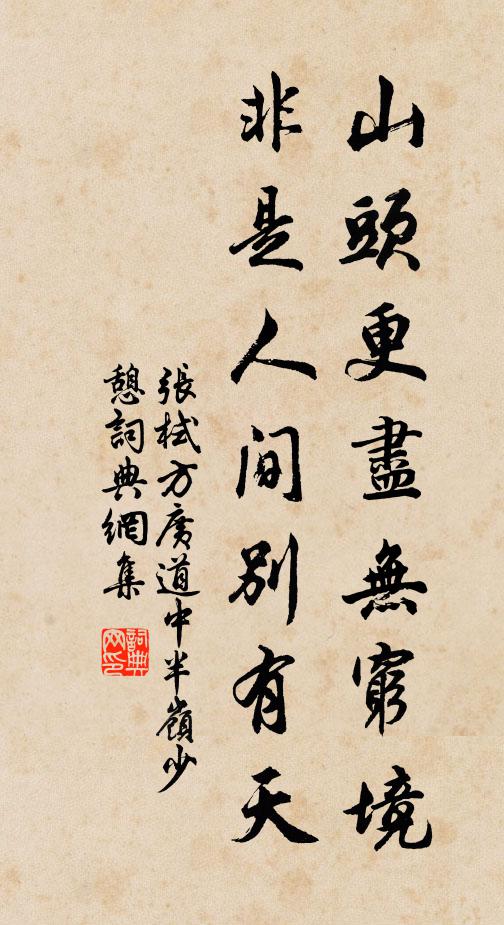 山頭更盡無窮境
非是人間別有天
張栻方廣道中半嶺少
憩詞典網集
詞典网印